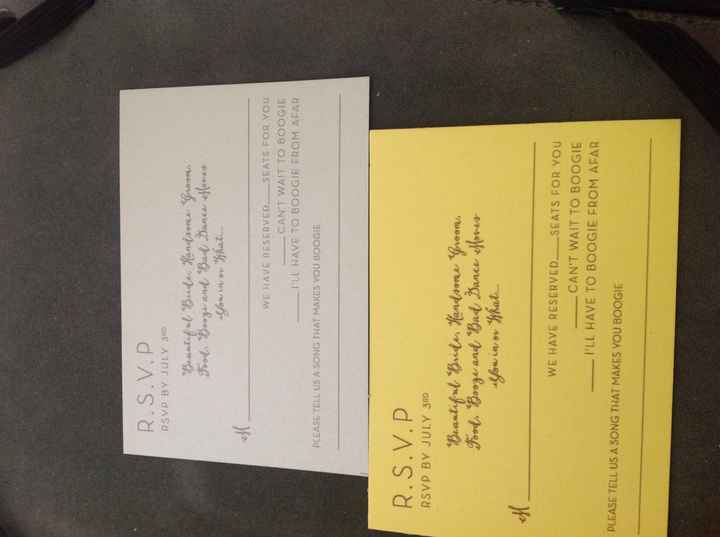 R.S.V.P
RSVP BY JULY 3RD
Beautiful Bride, Handsome Groom,
Food, Booze and Bad Dance Moves
You in or What...
M
WE HAVE RESERVED___SEATS FOR YOU
___CAN'T WAIT TO BOOGIE
___I'LL HAVE TO BOOGIE FROM AFAR
PLEASE TELL US A SONG THAT MAKES YOU BOOGIE
R.S.V.P
RSVP BY JULY 3RD
Beautiful Bride, Handsome Groom,
Food, Booze and Bad Dance Moves
You in or What...
M
WE HAVE RESERVED___SEATS FOR YOU
___CAN'T WAIT TO BOOGIE
___I'LL HAVE TO BOOGIE FROM AFAR
PLEASE TELL US A SONG THAT MAKES YOU BOOGIE